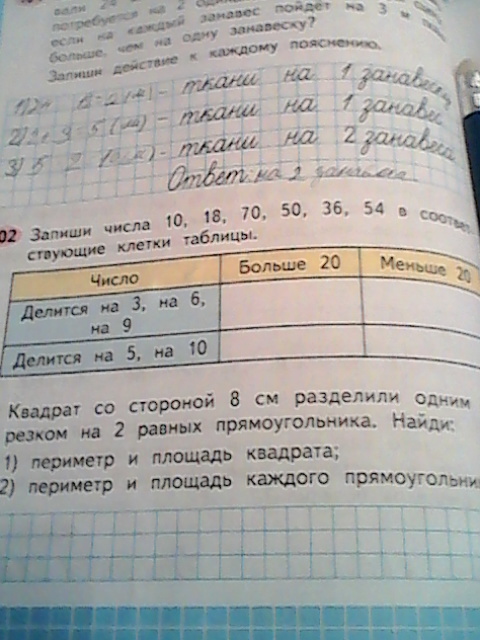 вали 24
потребуется на 2
если на каждый занавес пойдёт на 3 м
больше, чем на одну занавеску?
Запиши действие к каждому пояснению.
ткани на 1 занавеску
ткани на 1 занавес
ткани на 2 занавеса
Ответ: на 2 занавеса.
02 Запиши числа 10, 18, 70, 50, 36, 54 в соответ-
ствующие клетки таблицы.
Число Больше 20 Меньше 20
Делится на 3, на 6,
на 9
Делится на 5, на 10
Квадрат со стороной 8 см разделили одним
резком на 2 равных прямоугольника. Найди:
1) периметр и площадь квадрата;
2) периметр и площадь каждого прямоугольни